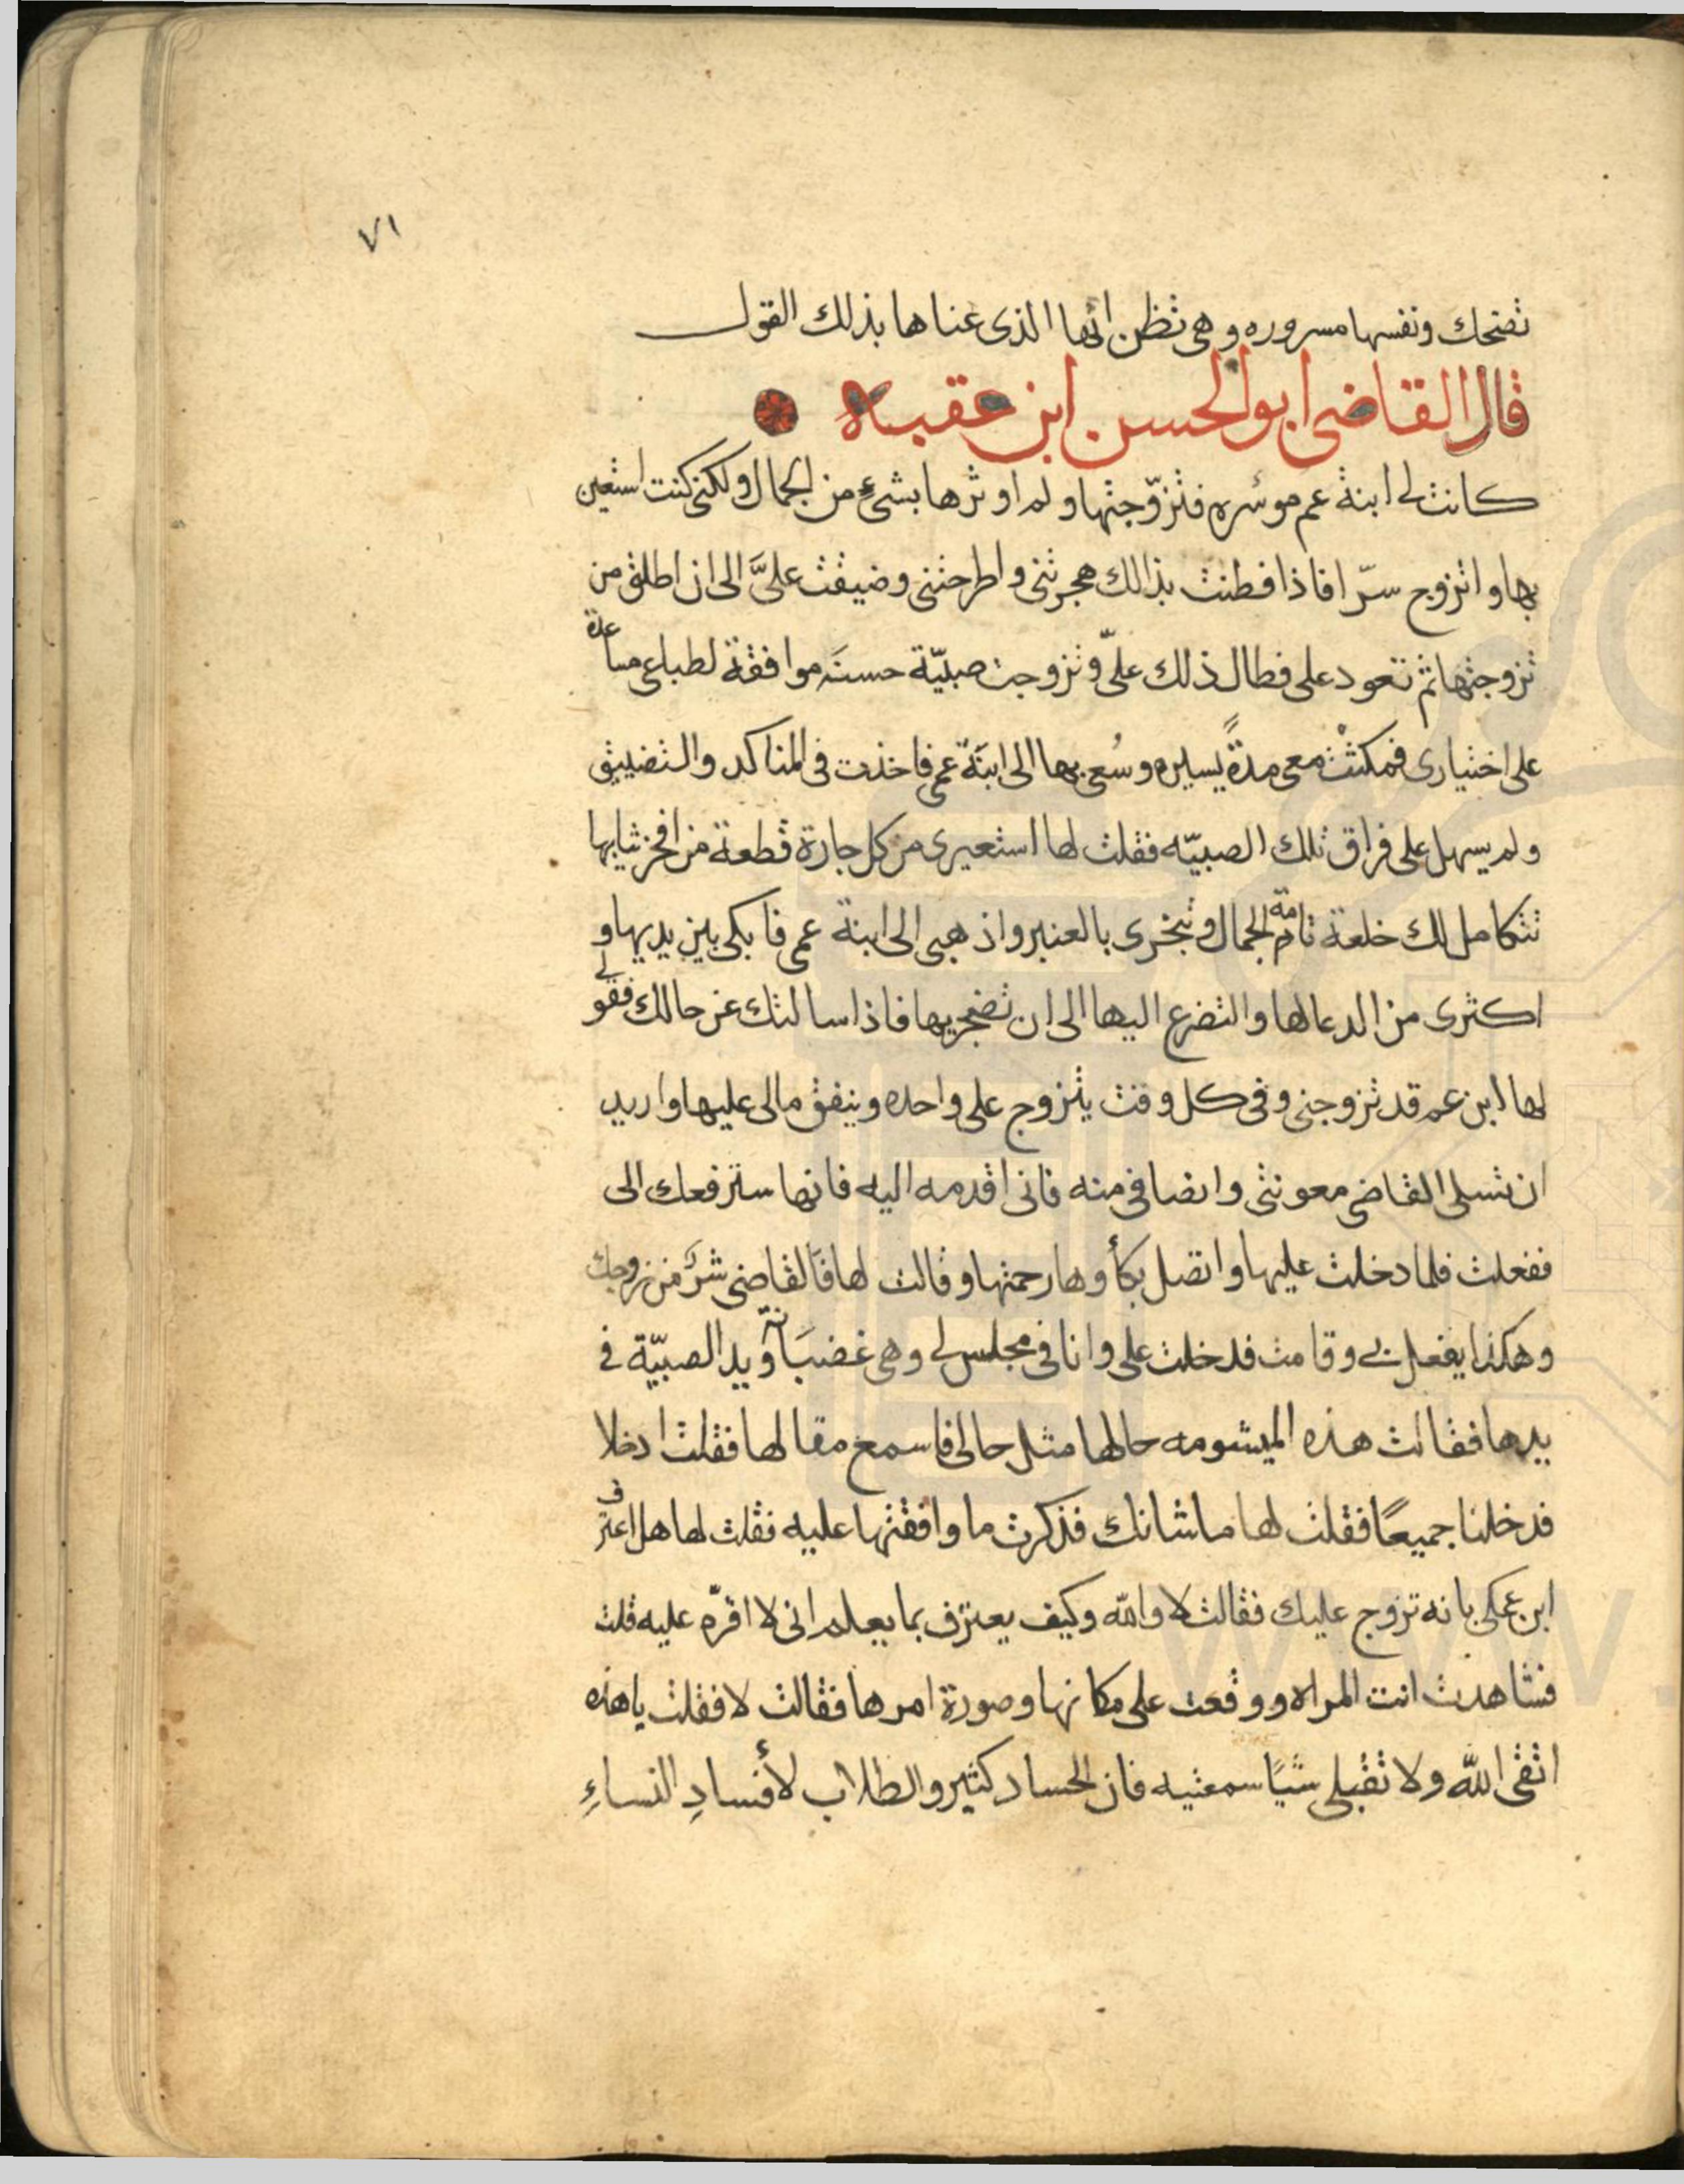 ٧١
تضحك ونفسها مسروره وهي تظن انها الذي عناها بذلك القول
قال القاضي ابو الحسن ابن عقبه
كانت لي ابنة عم موسره فتزوّجتها ولم اوثرها بشيء من الجمال ولكني كنت استعين
بها واتزوج سرّا فاذا فطنت بذالك هجرتني واطرحتني وضيقت عليَّ الى ان اطلق من
تزوجتها ثم تعود على فطال ذلك علىّ وتزوجت صبيّة حسنه موافقة لطباعي مساعدة
على اختياري فمكثت معي مدةً يسيره وسُعي بها الى ابنة عمي فاخذت في المناكد والتضييق
ولم يسهل على فراق تلك الصبيّه فقلت لها استعيري من كل جارة قطعة من افخر ثيابها
تتكامل لك خلعة تامة الجمال وتبخري بالعنبر واذهبي الى ابنة عمي فابكي بين يديها و
اكثري من الدعا لها والتضرع اليها الى ان تضجريها فاذا سالتك عن حالك فقولي
لها ابن عم قد تزوجني وفي كل وقت يتزوج على واحده وينفق مالى عليها واريد
ان تسلى القاضي معونتي وانصافي منه فاني اقدمه اليه فانها سترفعك الى
ففعلت فلما دخلت عليها واتصل بكأوها رحمتها وقالت لها فالقاضي شرٌ من زوجك
وهكذا يفعل بي وقامت فدخلت على وانا في مجلس لي وهي غضبانة ويد الصبيّة في
يدها فقالت هذه الميشومه حالها مثل حالى فاسمع مقالها فقلت ادخلا
فدخلنا جميعًا فقلت لها ما شانك فذكرت ما وافقتها عليه فقلت لها هل اعترف
ابن عمكي بانه تزوج عليك فقالت لا والله وكيف يعترف بما يعلم اني لا اقرّه عليه قلت
فشاهدت انت المراه ووقعت على مكانها وصورة امرها فقالت لا فقلت يا هذه
اتقى الله ولا تقبلي شيًا سمعتيه فان الحساد كثير والطلاب لأفسادِ النساءِ